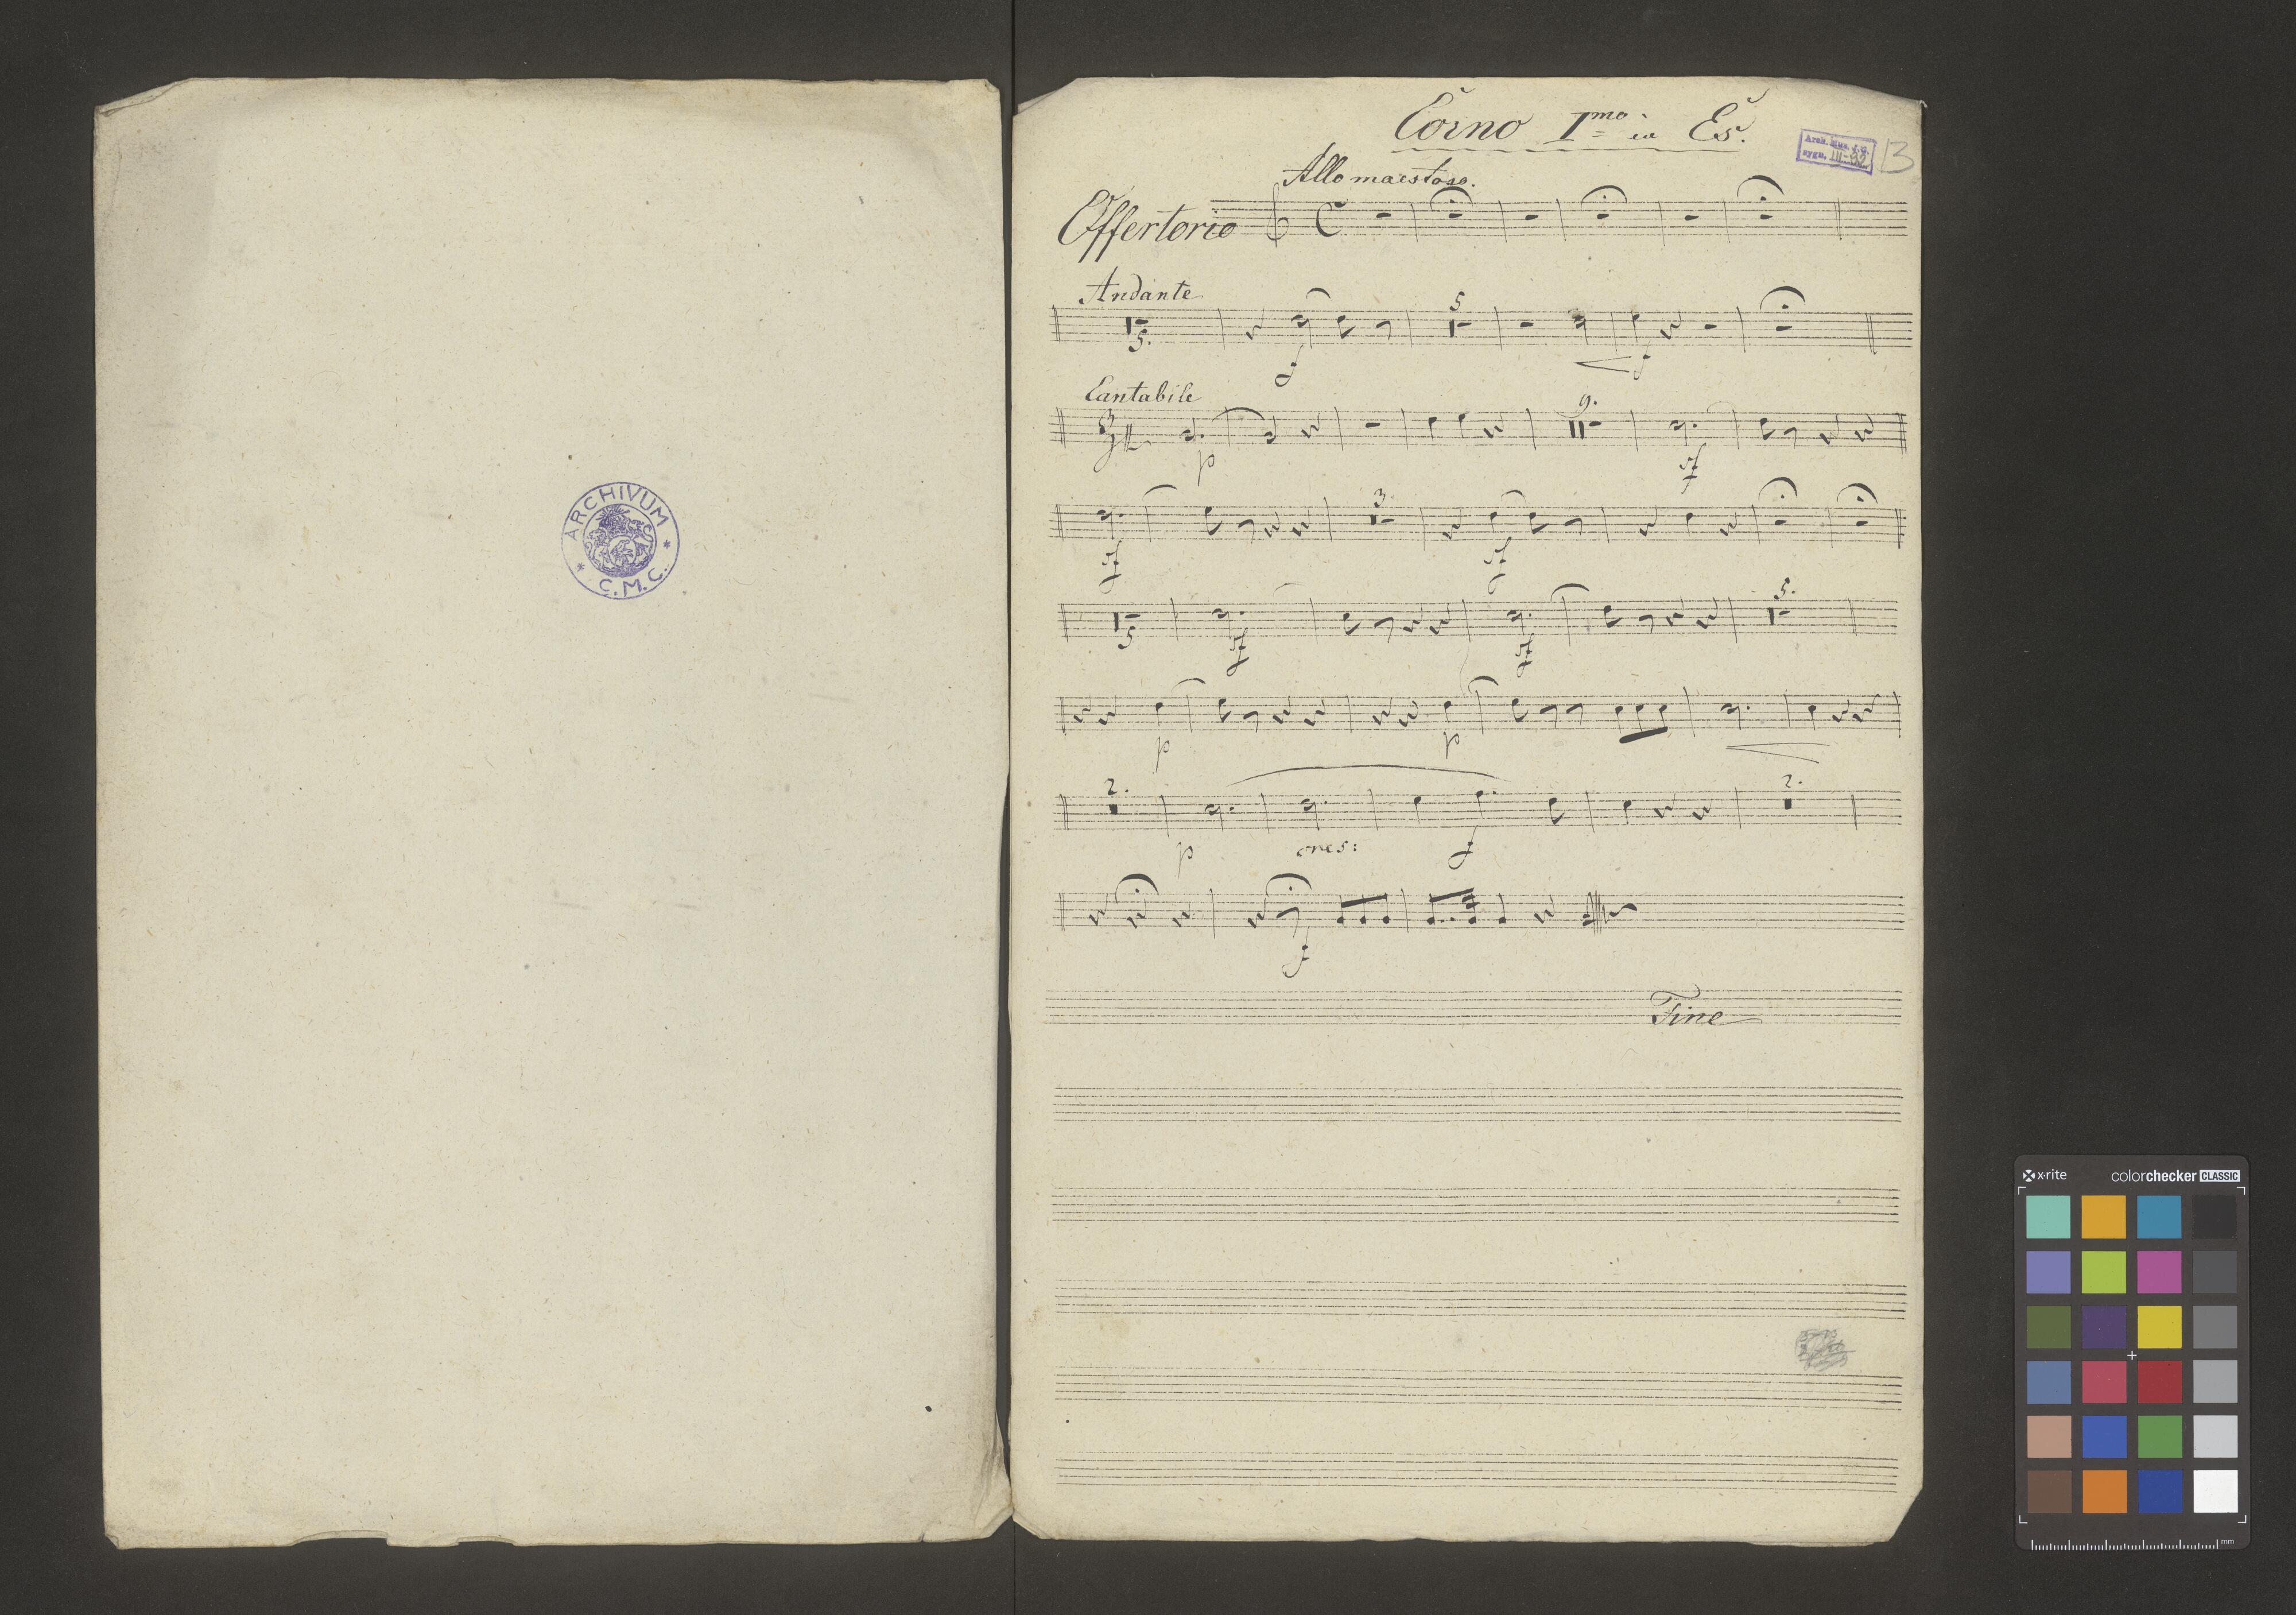 ARCHIVUM
* C.M.C. *
Corno Imo in Es.
Arch. Mus. J. G.
sygn. III-82
13
Allo maestoso.
Offertorio C
Andante
5.
f
5
f
Cantabile
p
9.
sf
sf
3
sf
5
sf
sf
5.
p
p
2.
p
cres:
f
2.
f
Fine
x-rite
colorchecker CLASSIC
mm